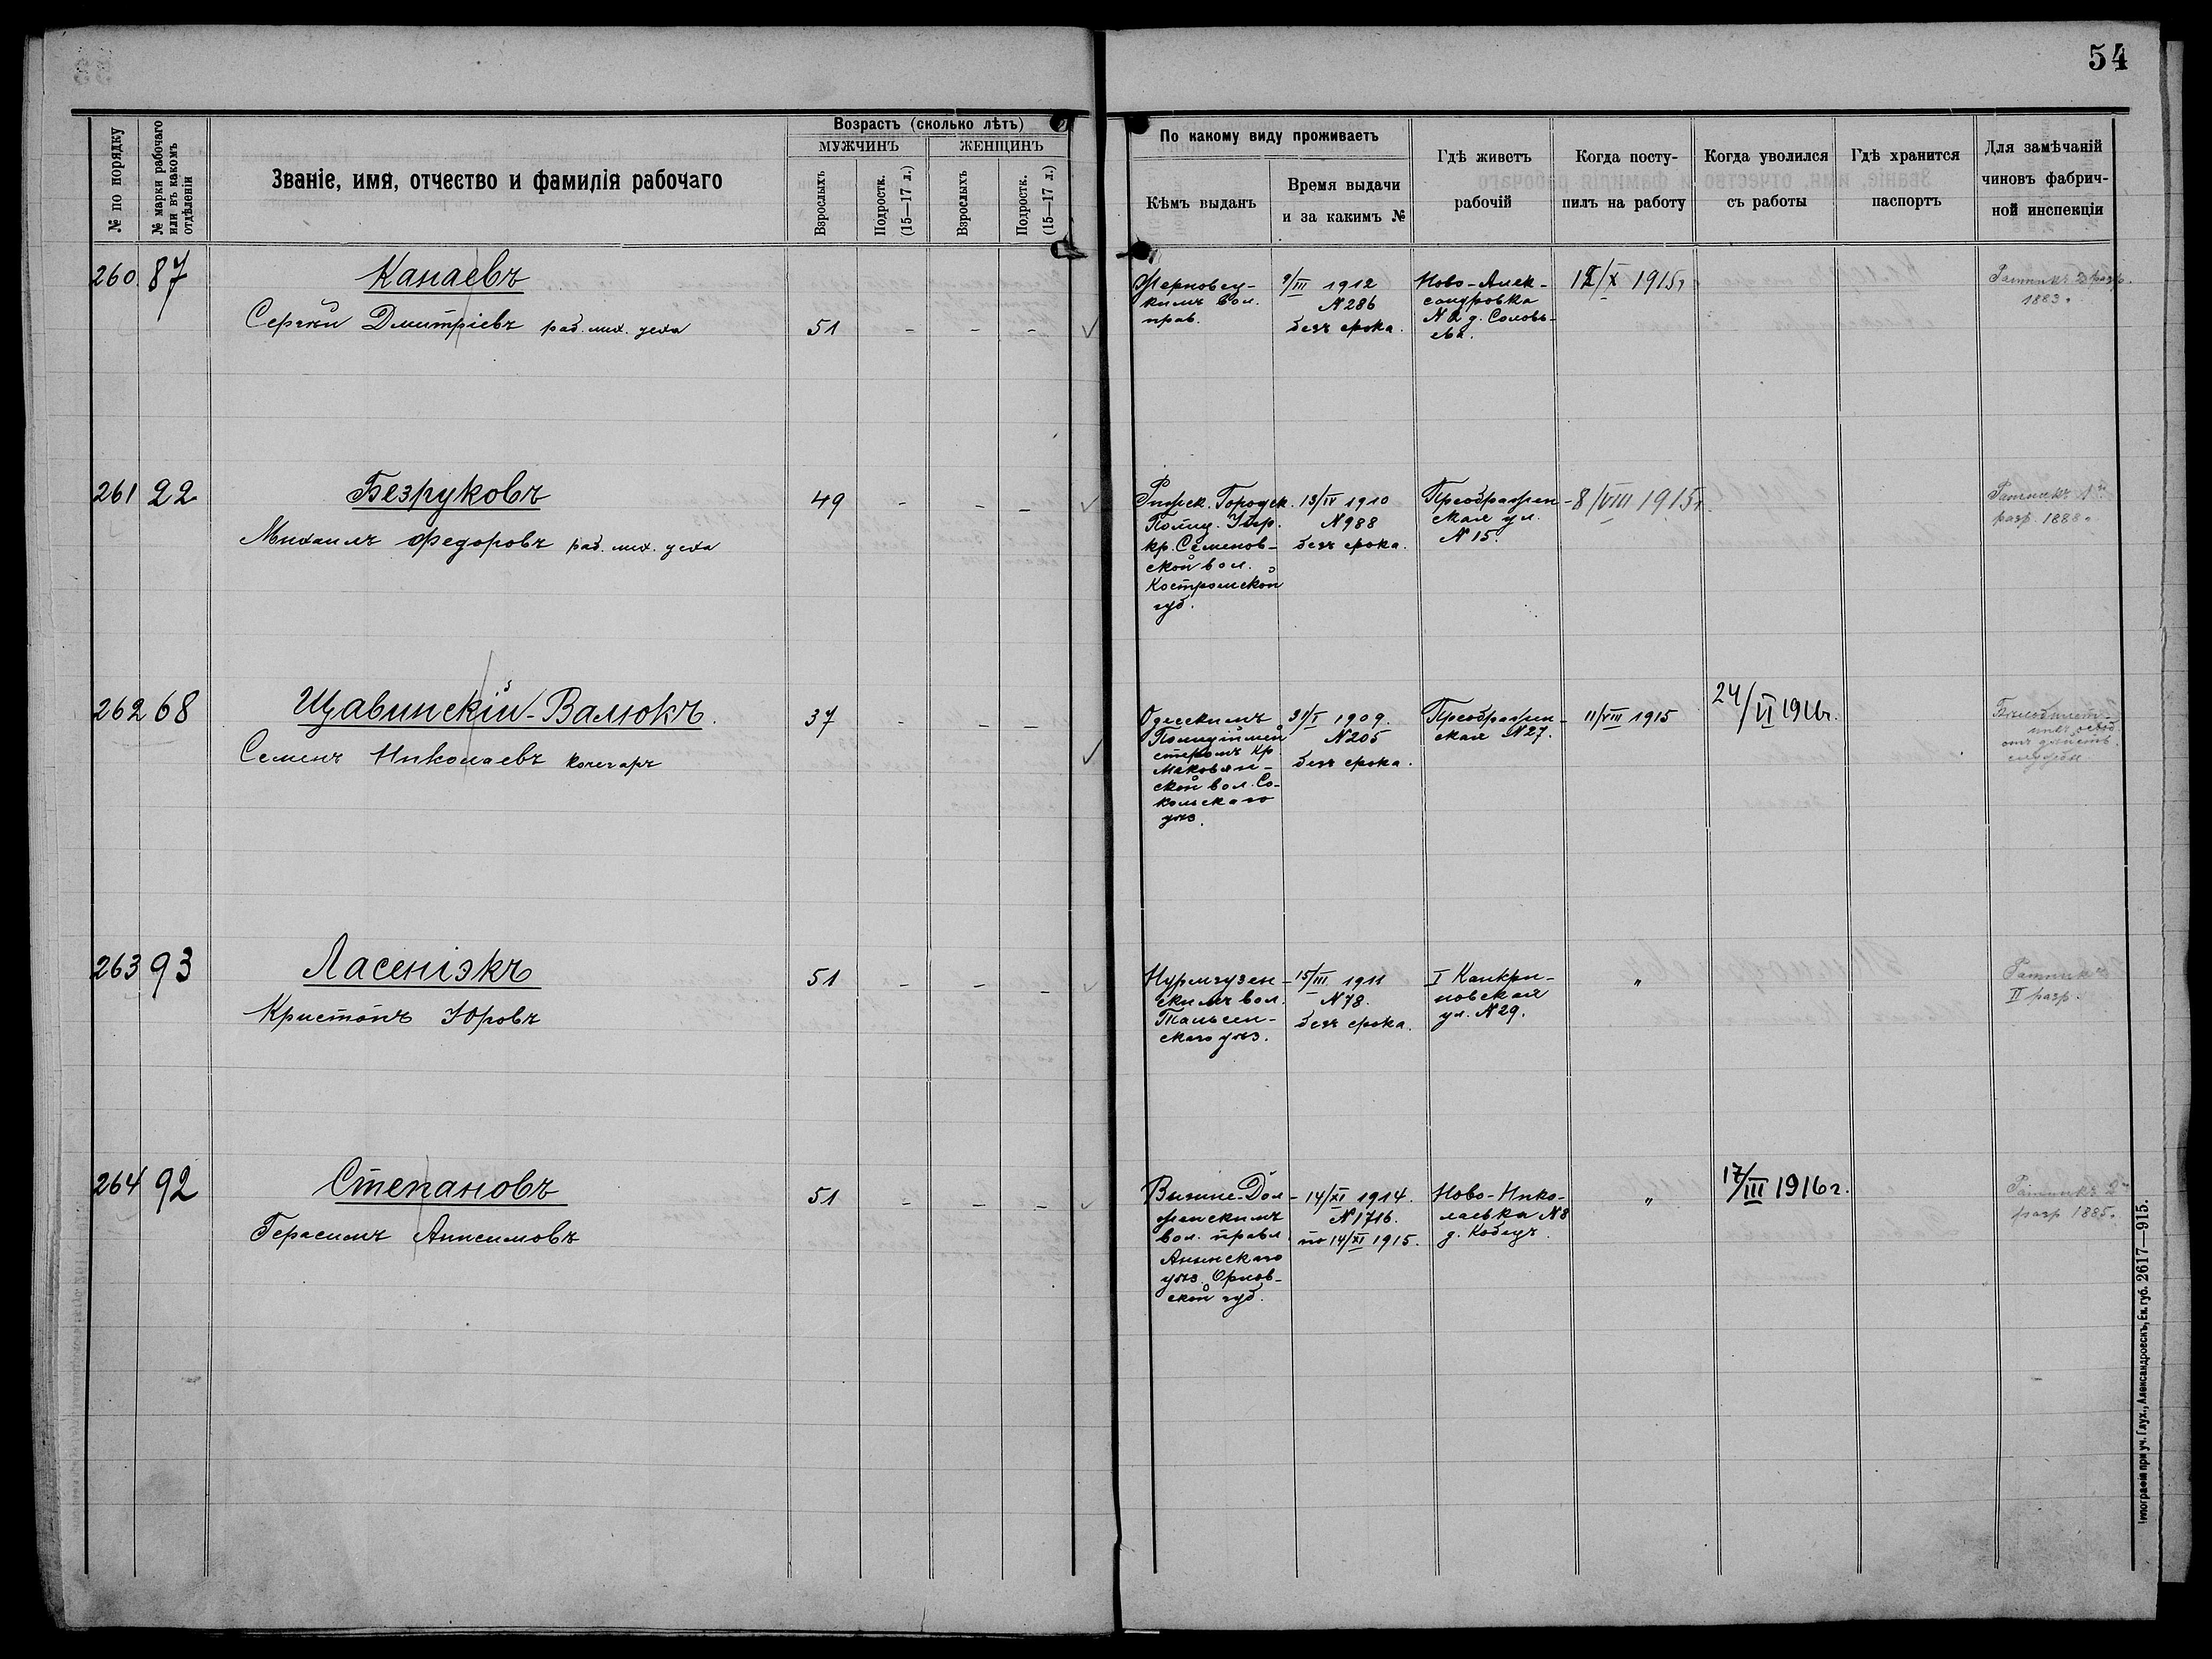 54
№ по порядку
№ марки рабочаго
или въ какомъ
отдѣленіи
Званіе, имя, отчество и фамилія рабочаго
Возрастъ (сколько лѣтъ)
МУЖЧИНЪ
ЖЕНЩИНЪ
Взрослыхъ
Подростк.
(15—17 л.)
Взрослыхъ
Подростк.
(15—17 л.)
По какому виду проживаетъ
Кѣмъ выданъ
Время выдачи
и за какимъ №
Гдѣ живетъ
рабочій
Когда посту-
пилъ на работу
Когда уволился
съ работы
Гдѣ хранится
паспортъ
Для замѣчаній
чиновъ фабрич-
ной инспекціи
260. 87
Канаевъ
Сергѣй Дмитріевъ раб. мих. цеха
51 - - -
вол.
прав.
9/III 1912
№ 286
безъ срока.
Ново-Алек-
сандровка
№ 2 д. Соловь-
ева.
12/X 1915г
Ратникъ 2 разр.
1883.
261 22
Безруковъ
Михаилъ Федоровъ раб. мих. цеха
49 - - -
Рижск. Городск.
Полиц. Упр.
кр. Семенов-
ской вол.
Костромской
губ.
13/IV 1910
№ 988
безъ срока.
Преображен-
ская ул.
№ 15.
8/VIII 1915г.
Ратникъ 1й
разр. 1888.
262 68
Щавинскій-Валюкъ.
Семенъ Николаевъ кочегаръ
37 - - -
Одесскимъ
Полиціймей
стеромъ Кр.
ской вол. Со-
кольскаго
уѣз.
31/I 1909.
№ 205
безъ срока.
Преображен-
ская №27.
11/VIII 1915
24/VI 1916г.
263 93
Ласеніэкъ
Кристапъ Юровъ
51 - - -
Нурмгузен-
скимъ вол.
Тальсен-
скаго уѣз.
15/III 1911
№ 78.
безъ срока.
I Канкри-
новская
ул. № 29.
"
Ратникъ
II разр.
264 92
Степановъ
Герасимъ Анисимовъ
51 - - -
Вышне-Дол-
женскимъ
вол. правл.
уѣз. Орлов-
ской губ.
14/XI 1914.
№ 1716.
по 14/XI 1915.
Ново-Нико-
лаевка № 8
д. Кобецъ.
"
17/III 1916 г.
Ратникъ 2й
разр 1885.
Типографія при уч. Глух., Александровскъ, Ек. губ. 2617—915.